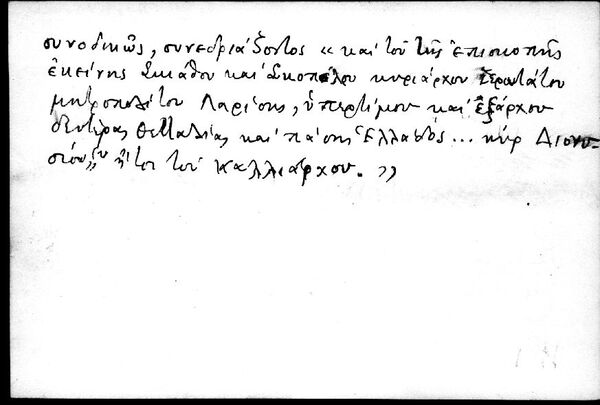 συνοδικῶς, συνεδριάζοντος « καὶ τοῦ τῆς ἐπισκοπῆς
ἐκείνης Σκιάθου καὶ Σκοπέλου κυριάρχου Ἱερωτάτου
μητροπολίτου Λαρίσης, ὑπερτίμου καὶ ἐξάρχου
δευτέρας Θετταλίας καὶ πάσης Ἑλλάδος... κὺρ Διονυ-
σίου, ἤτοι τοῦ Καλλιάρχου. »